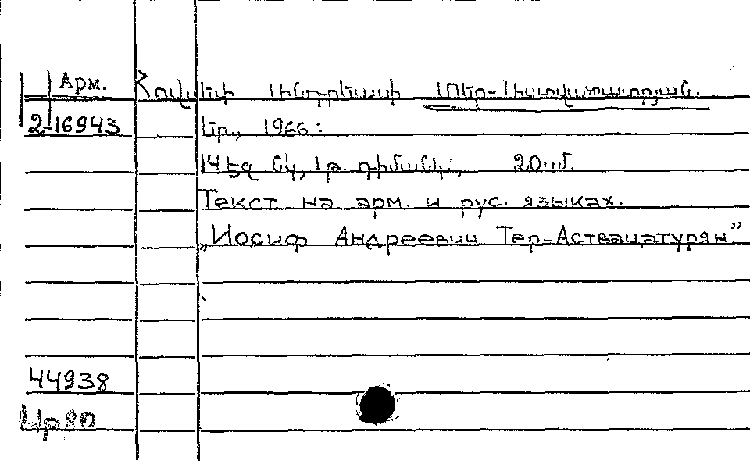 Арм. Հովսեփ Անդրեասի Տեր-Աստվածատրյան.
2-16943 Եր., 1966:
14 էջ նկ, 1թ դիմանկ., 20սմ.
Текст на арм. и рус. языках.
„Иосиф Андреевич Тер-Аствацатурян”
44938